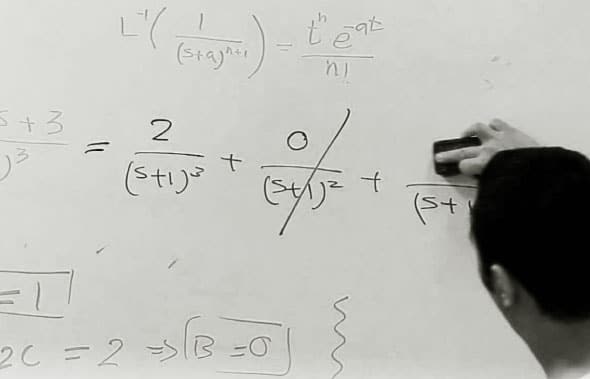 L⁻¹( 1/(s+a)ⁿ⁺¹ ) = tⁿ e⁻ᵃᵗ/n!
s+3/)³ = 2/(s+1)³ + 0/(s+1)² + /(s+1
=1
2C = 2 => B=0